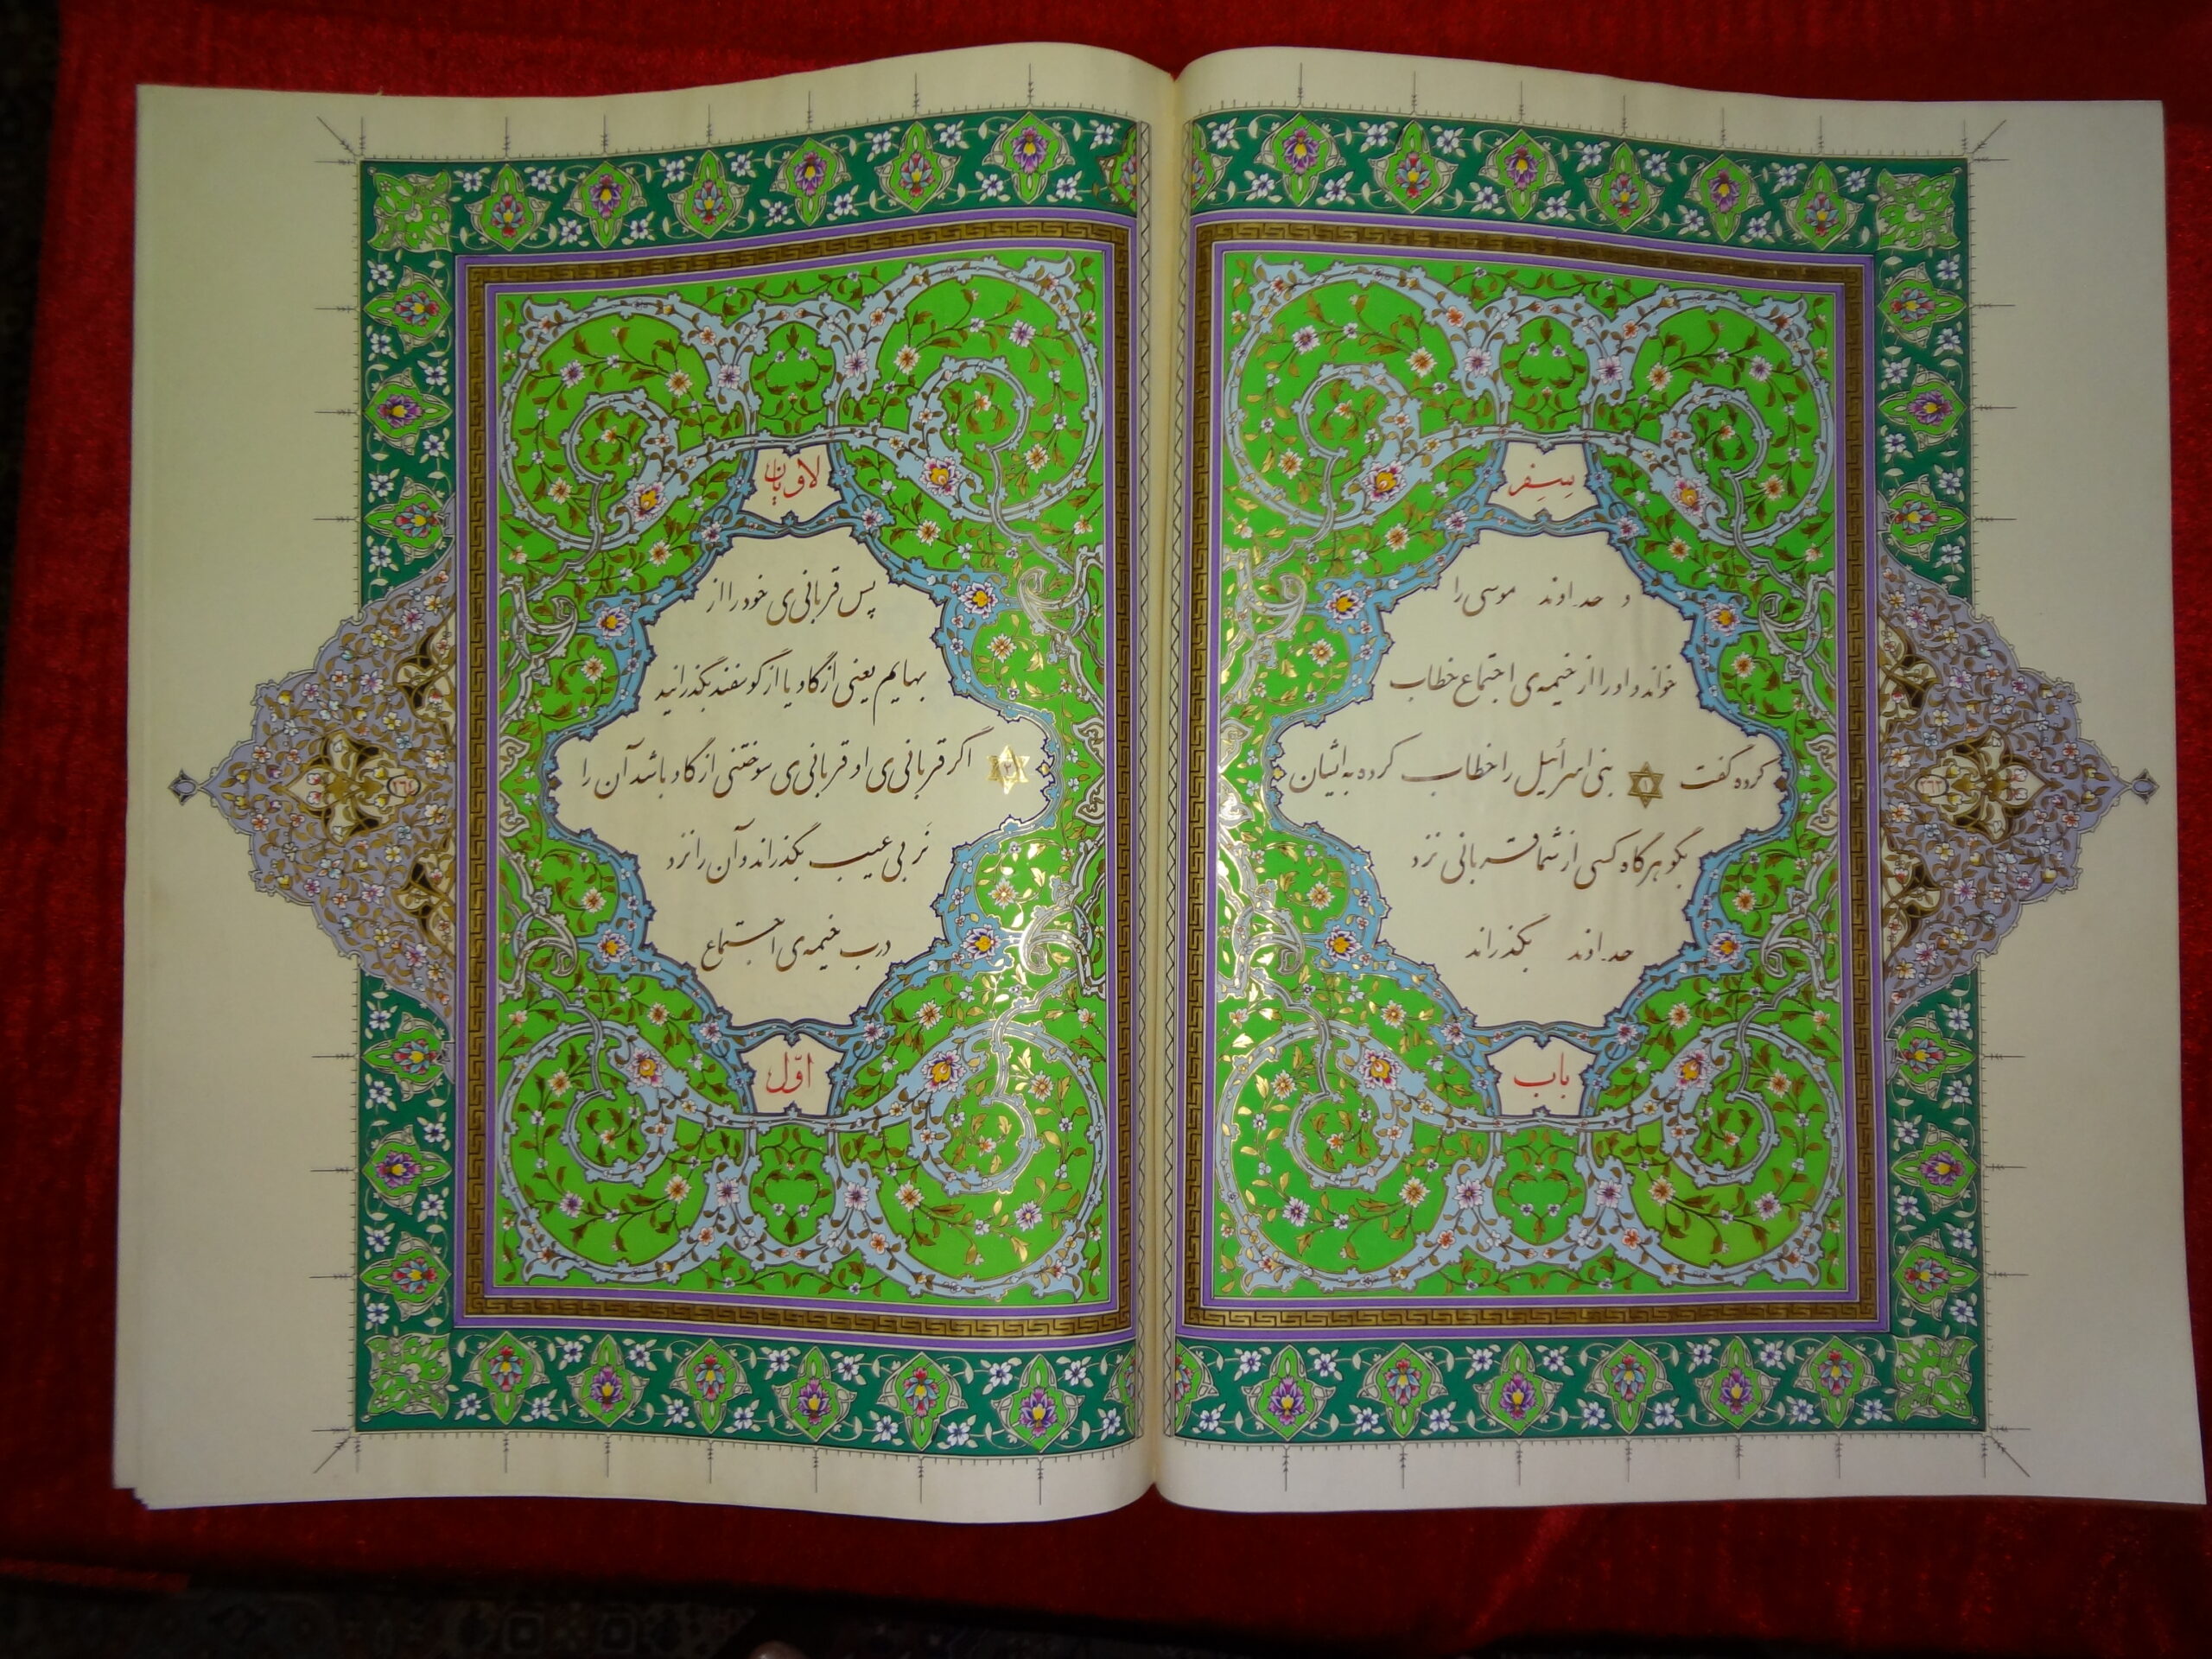 سِفِر
و حد.اوند موسی را
خوانده و او را از خیمه‌ی اجتماع خطاب
کرده گفت ۱ بنی اسرائیل را خطاب کرده به ایشان
بگو هرگاه کسی از شما قربانی نزد
حد.اوند بگذراند
باب
لاویان
پس قربانی‌ی خود را از
بهایم یعنی از گاو یا از گوسفند بگذرانید
۲ اگر قربانی‌ی او قربانی‌ی سوختنی از گاو باشد آن را
نَر بی عیب بگذراند و آن را نزد
درب خیمه‌ی اجتماع
اوّل